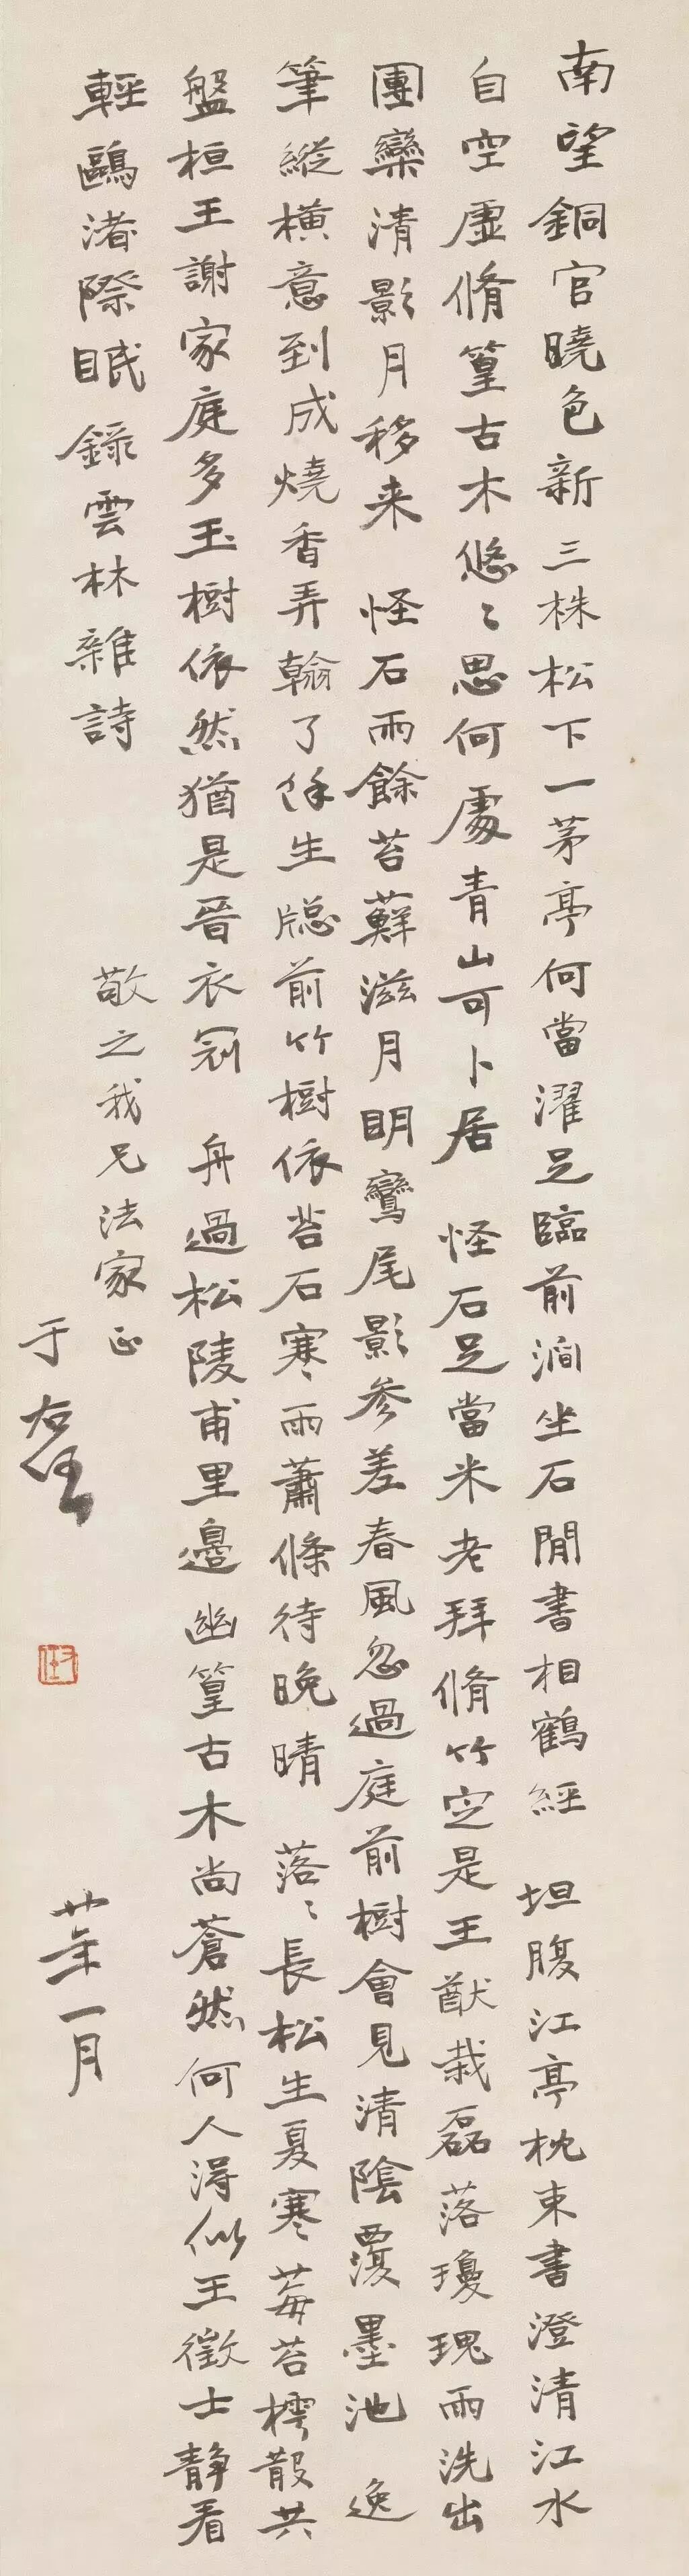 南望銅官曉色新三株松下一茅亭何當濯足臨前澗坐石閒書相鶴經 坦腹江亭枕束書澄清江水
自空虛脩篁古木悠〻思何處青山可卜居 怪石足當米老拜脩竹定是王猷栽磊落瓊瑰雨洗出
團欒清影月移来 怪石雨餘苔蘚滋月明鸞尾影参差春風忽過庭前樹會見清陰覆墨池 逸
筆縱橫意到成燒香弄翰了餘生牕前竹樹依苔石寒雨蕭條待晚晴 落〻長松生夏寒莓苔樗散共
盤桓王謝家庭多玉樹依然猶是晉衣冠 舟過松陵甫里邊幽篁古木尚蒼然何人得似王徵士静看
輕鷗渚際眠錄雲林雜詩
敬之我兄法家正
于右任
廿年一月
右任